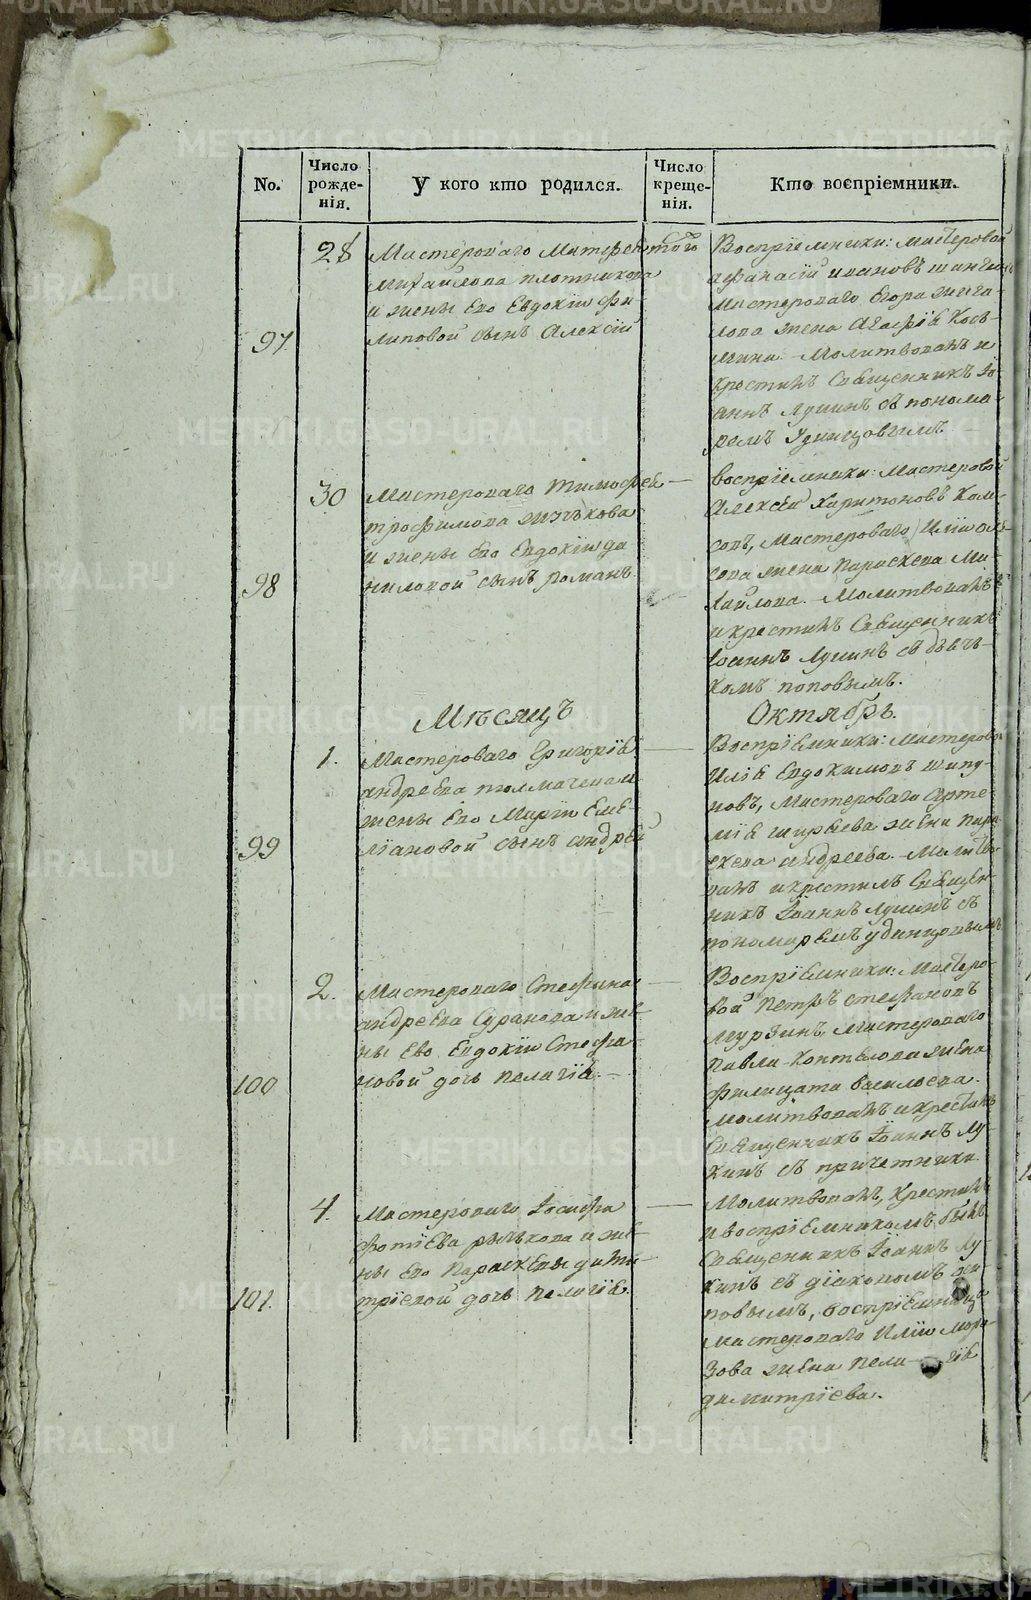 No.
Число рожде- нія.
У кого кто родился.
Число креще- нія.
Кто воспріемники.
97
28
Мастероваго Матфея
Михайлова Плотникова
и жены Его Евдокіи Фи
липовой сынъ Алексій
того
Воспріемники: Мастеровой
Афанасій Ивановъ
Мастероваго Егора
жена Агафіа Кось-
мина. Молитвовалъ и
крестилъ Священникъ Іо-
аннъ Лукинъ съ понома-
ремъ Удинцовымъ
98
30
Мастероваго Тимофея
Трофимова
и жены Его Евдокіи Да
ниловой сынъ Романъ
Воспріемники: Мастеровой
Алексей Харитоновъ
Мастероваго Иліи
жена Параскева Ми-
хайлова. Молитвовалъ
и крестилъ Священникъ
Іоаннъ Лукинъ съ дьяч-
комъ Поповымъ.
Месяцъ
Октябрь.
99
1.
Мастероваго Григоріа
Андреева Толмачева и
жены Его Маріи Еме-
ліановой сынъ Андрей
Воспріемники: Мастеровой
Иліа Евдокимовъ Шипу-
новъ, Мастероваго Арте-
міа Ширяева жена Пара
скева Андреева. Молитво
валъ и крестилъ Священ-
никъ Іоаннъ Лукинъ съ
пономаремъ Удинцовымъ
100
2.
Мастероваго Стефана
Андреева и же-
ны Ево Евдокіи Стефа-
новой дочь Пелагіа.
Воспріемники: Мастеро-
вой Петръ Стефановъ
Мурзинъ, Мастероваго
Павла Коптелова жена
Филицата Васильева.
Молитвовалъ и крестилъ
Священникъ Іоаннъ Лу-
кинъ съ причетники.
101.
4.
Мастероваго Іосифа
Фотіева и же-
ны Его Параскевы Дими-
тріевой дочь Пелагіа.
Молитвовалъ, крестилъ
и воспріемникомъ былъ
Священникъ Іоаннъ Лу-
кинъ съ діакономъ
повымъ, воспріемница
Мастероваго Иліи Моро-
зова жена Пелагіа
Димитріева.
METRIKI.GASO-URAL.RU